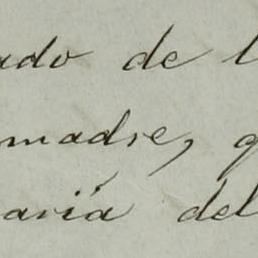 ado de l
madre, q
aría del